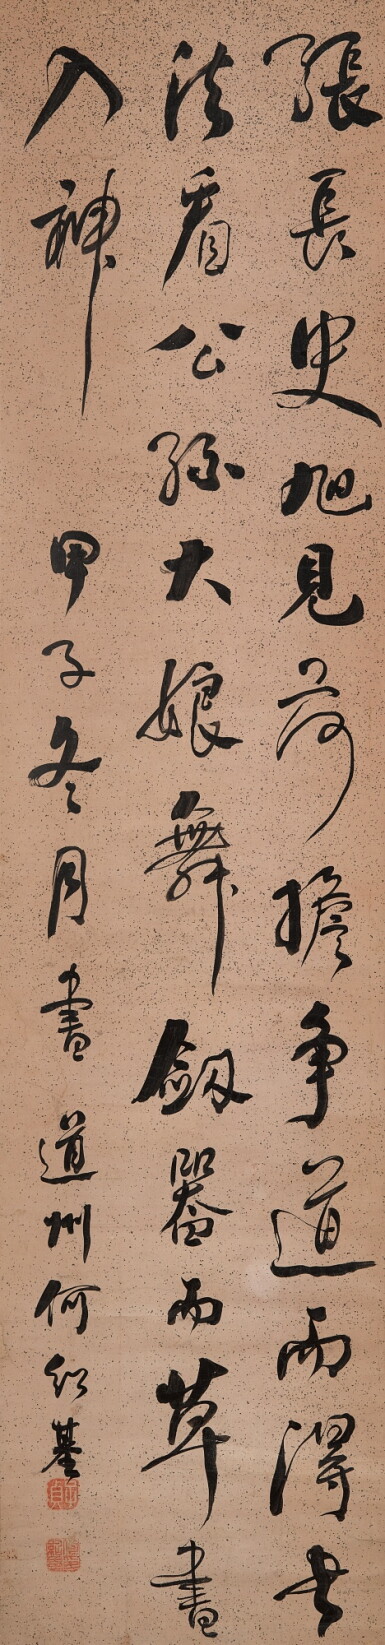 張長史旭見荷擔争道而得書
法看公孫大娘舞劔器而草書
入神
甲子冬月書道州何紹基